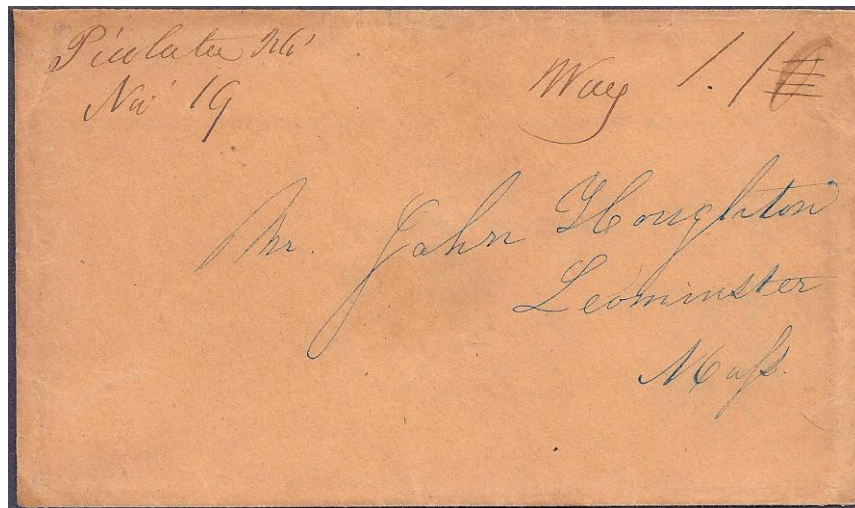 Picolata
Nov 19
Way 1.10
Mr. John Houghton
Leominster
Mass.